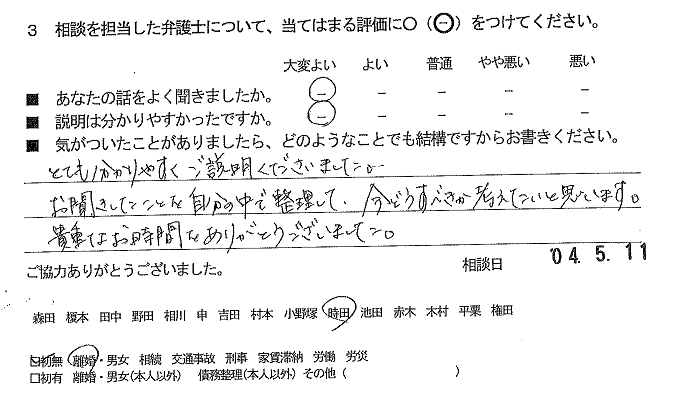 3 相談を担当した弁護士について、当てはまる評価に○（⊖）をつけてください。
大変よい よい 普通 やや悪い 悪い
■ あなたの話をよく聞きましたか。 － － － － －
■ 説明は分かりやすかったですか。 － － － － －
■ 気がついたことがありましたら、どのようなことでも結構ですからお書きください。
とても分かりやすくご説明くださいました。
お聞きしたことを自分の中で整理して、今どうすべきか考えたいと思います。
貴重なお時間をありがとうございました。
ご協力ありがとうございました。 相談日 '04.5.11
森田 榎本 田中 野田 相川 申 吉田 村本 小野塚 時田 池田 赤木 木村 平栗 権田
☑初無 離婚・男女 相続 交通事故 刑事 家賃滞納 労働 労災
□初有 離婚・男女(本人以外) 債務整理(本人以外) その他 ( )